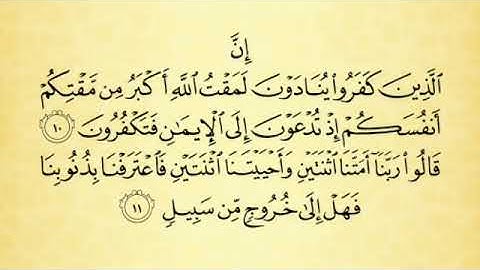 إِنَّ
ٱلَّذِينَ كَفَرُوا۟ يُنَادَوْنَ لَمَقْتُ ٱللَّهِ أَكْبَرُ مِن مَّقْتِكُمْ
أَنفُسَكُمْ إِذْ تُدْعَوْنَ إِلَى ٱلْإِيمَٰنِ فَتَكْفُرُونَ ١٠
قَالُوا۟ رَبَّنَآ أَمَتَّنَا ٱثْنَتَيْنِ وَأَحْيَيْتَنَا ٱثْنَتَيْنِ فَٱعْتَرَفْنَا بِذُنُوبِنَا
فَهَلْ إِلَىٰ خُرُوجٍ مِّن سَبِيلٍ ١١